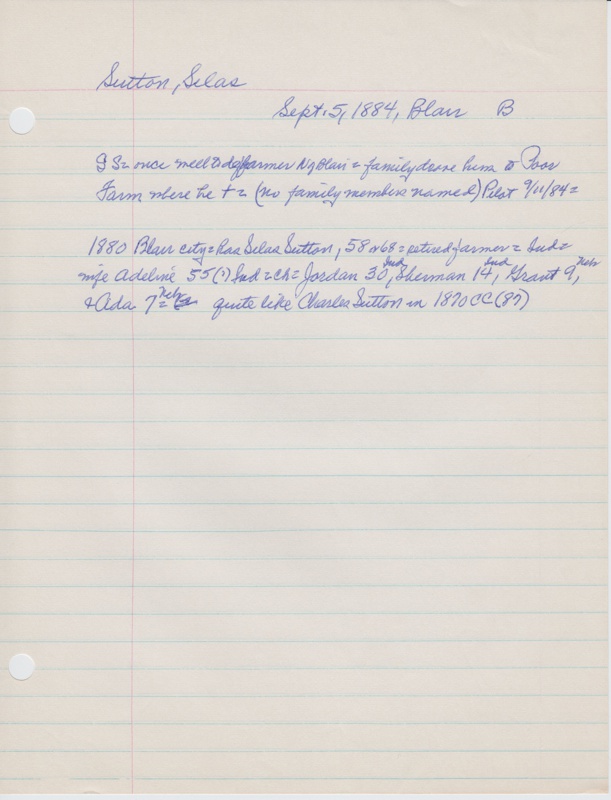 Sutton, Silas
Sept. 5, 1884, Blair B
GS = once well to do farmer N of Blair = family drove him to Poor
Farm where he + = (no family members named) Pilot 9/11/84 =
1880 Blair city = has Silas Sutton, 58 or 68 = retired farmer = Ind =
wife Adeline 55(?) Ind = ch = Jordan 30 Ind, Sherman 14 Ind, Grant 9 Neb,
+ Ada 7 Neb = quite like Charles Sutton in 1870 CC (87)